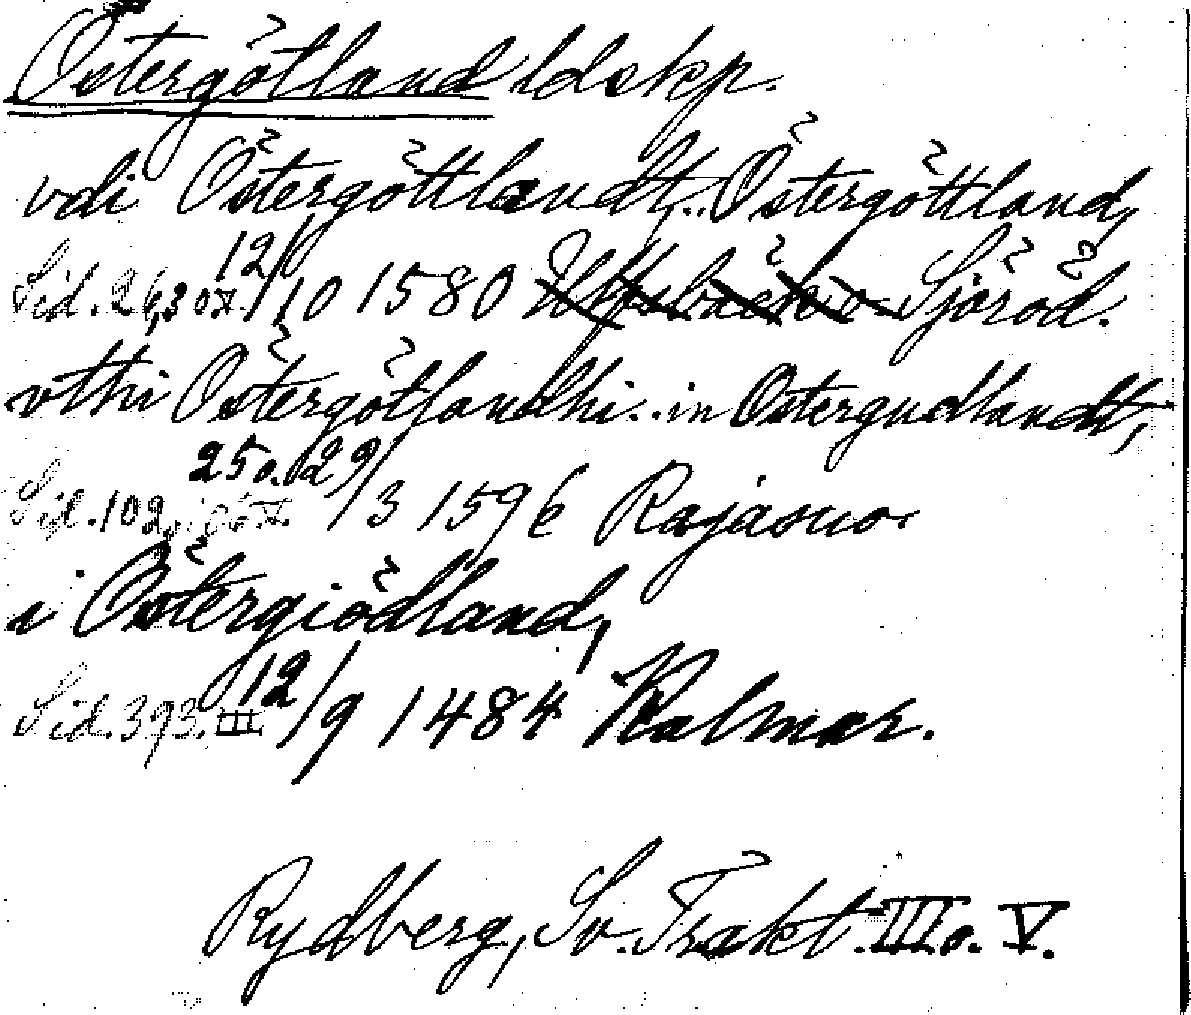 Östergötland ldskp.
vdi Östergöttlandt,.. Östergöttland,
Sid. 26, 12/10 1580 Sjöröd.
vthi Östergötlandhi.. in Ostergudlandt,
Sid. 102, 25 o. 29/3 1596 Rajasuo
i Östergiödland,
Sid. 393. III. 12/9 1484 Kalmar.
Rydberg, Sv. Trakt. III o. V.